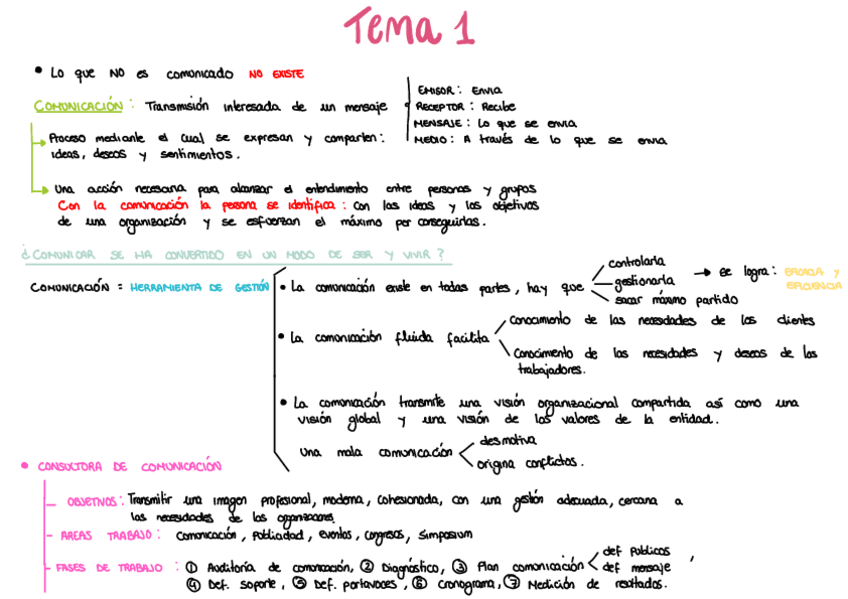 Tema 1
• Lo que NO es comunicado NO EXISTE
COMUNICACIÓN: Transmisión interesada de un mensaje
EMISOR: Envia
RECEPTOR: Recibe
MENSAJE: Lo que se envia
MEDIO: A través de lo que se envia
Proceso mediante el cual se expresan y comparten:
ideas, deseos y sentimientos.
Una acción necesaria para alcanzar el entendimiento entre personas y grupos
Con la comunicación la persona se identifica: con las ideas y los objetivos
de una organización y se esfuerzan el máximo por conseguirlas.
¿COMUNICAR SE HA CONVERTIDO EN UN MODO DE SER Y VIVIR?
COMUNICACIÓN = HERRAMIENTA DE GESTIÓN
• La comunicación existe en todas partes, hay que
controlarla
gestionarla
sacar máximo partido
→ se logra: EFICACIA y
EFICIENCIA
• La comunicación fluida facilita
Conocimiento de las necesidades de los clientes
Conocimiento de las necesidades y deseos de los
trabajadores.
• La comunicación transmite una visión organizacional compartida así como una
visión global y una visión de los valores de la entidad.
Una mala comunicación
desmotiva
origina conflictos.
• CONSULTORA DE COMUNICACIÓN
OBJETIVOS: Transmitir una imagen profesional, moderna, cohesionada, con una gestión adecuada, cercana a
las necesidades de las organizaciones.
AREAS TRABAJO: Comunicación, publicidad, eventos, congresos, simposium
FASES DE TRABAJO: ① Auditoría de comunicación, ② Diagnóstico, ③ Plan comunicación
def publicos
def mensaje,
④ Def. soporte, ⑤ Def. portavoces, ⑥ Cronograma, ⑦ Medición de resultados.